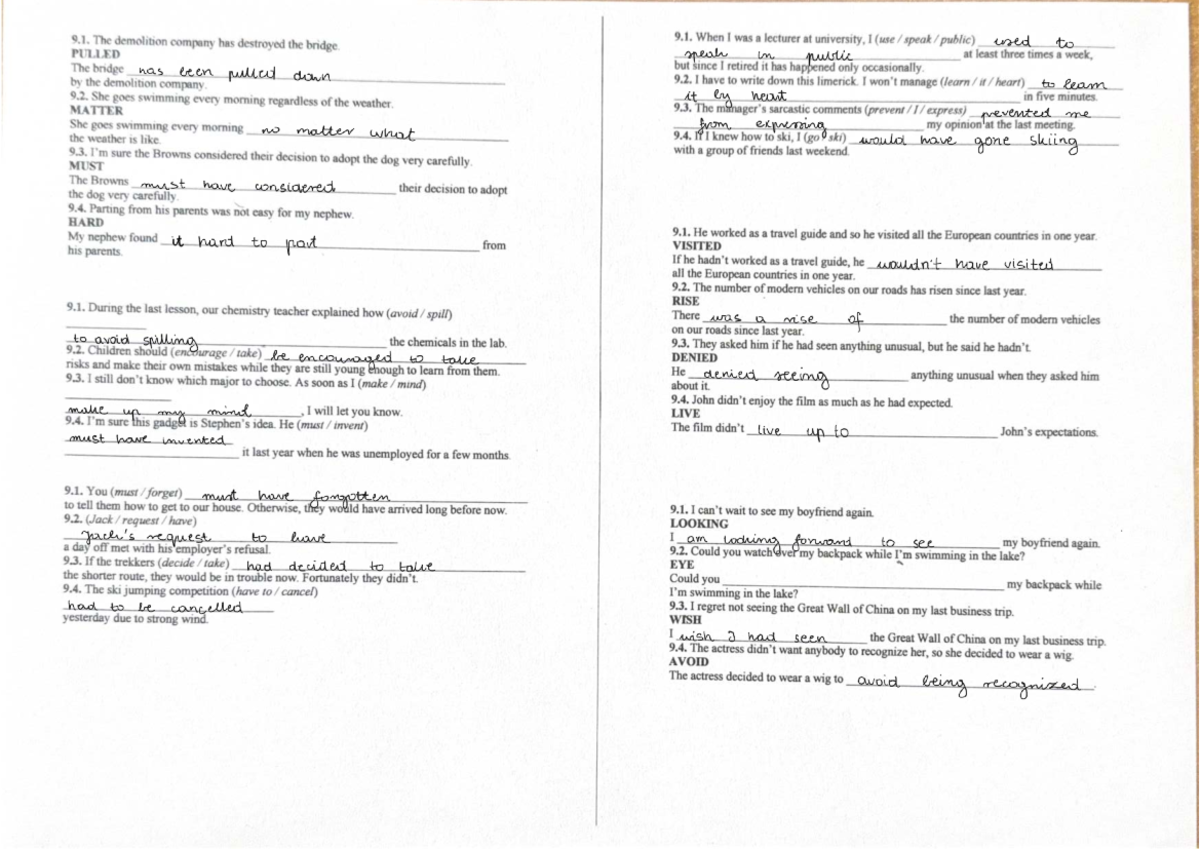 9.1. The demolition company has destroyed the bridge.
PULLED
The bridge has been pulled down
by the demolition company.
9.2. She goes swimming every morning regardless of the weather.
MATTER
She goes swimming every morning no matter what
the weather is like.
9.3. I'm sure the Browns considered their decision to adopt the dog very carefully.
MUST
The Browns must have considered their decision to adopt
the dog very carefully.
9.4. Parting from his parents was not easy for my nephew.
HARD
My nephew found it hard to part from
his parents.
9.1. During the last lesson, our chemistry teacher explained how (avoid / spill)
to avoid spilling the chemicals in the lab.
9.2. Children should (encourage / take) be encouraged to take
risks and make their own mistakes while they are still young enough to learn from them.
9.3. I still don't know which major to choose. As soon as I (make / mind)
make up my mind, I will let you know.
9.4. I'm sure this gadget is Stephen's idea. He (must / invent)
must have invented
it last year when he was unemployed for a few months.
9.1. You (must / forget) must have forgotten
to tell them how to get to our house. Otherwise, they would have arrived long before now.
9.2. (Jack / request / have)
Jack's request to have
a day off met with his employer's refusal.
9.3. If the trekkers (decide / take) had decided to take
the shorter route, they would be in trouble now. Fortunately they didn't.
9.4. The ski jumping competition (have to / cancel)
had to be cancelled
yesterday due to strong wind.
9.1. When I was a lecturer at university, I (use / speak / public) used to
speak in public at least three times a week,
but since I retired it has happened only occasionally.
9.2. I have to write down this limerick. I won't manage (learn / it / heart) to learn
it by heart in five minutes.
9.3. The manager's sarcastic comments (prevent / I / express) prevented me
from expressing my opinion at the last meeting.
9.4. If I knew how to ski, I (go / ski) would have gone skiing
with a group of friends last weekend.
9.1. He worked as a travel guide and so he visited all the European countries in one year.
VISITED
If he hadn't worked as a travel guide, he wouldn't have visited
all the European countries in one year.
9.2. The number of modern vehicles on our roads has risen since last year.
RISE
There was a rise of the number of modern vehicles
on our roads since last year.
9.3. They asked him if he had seen anything unusual, but he said he hadn't.
DENIED
He denied seeing anything unusual when they asked him
about it.
9.4. John didn't enjoy the film as much as he had expected.
LIVE
The film didn't live up to John's expectations.
9.1. I can't wait to see my boyfriend again.
LOOKING
I am looking forward to see my boyfriend again.
9.2. Could you watch over my backpack while I'm swimming in the lake?
EYE
Could you my backpack while
I'm swimming in the lake?
9.3. I regret not seeing the Great Wall of China on my last business trip.
WISH
I wish I had seen the Great Wall of China on my last business trip.
9.4. The actress didn't want anybody to recognize her, so she decided to wear a wig.
AVOID
The actress decided to wear a wig to avoid being recognized.